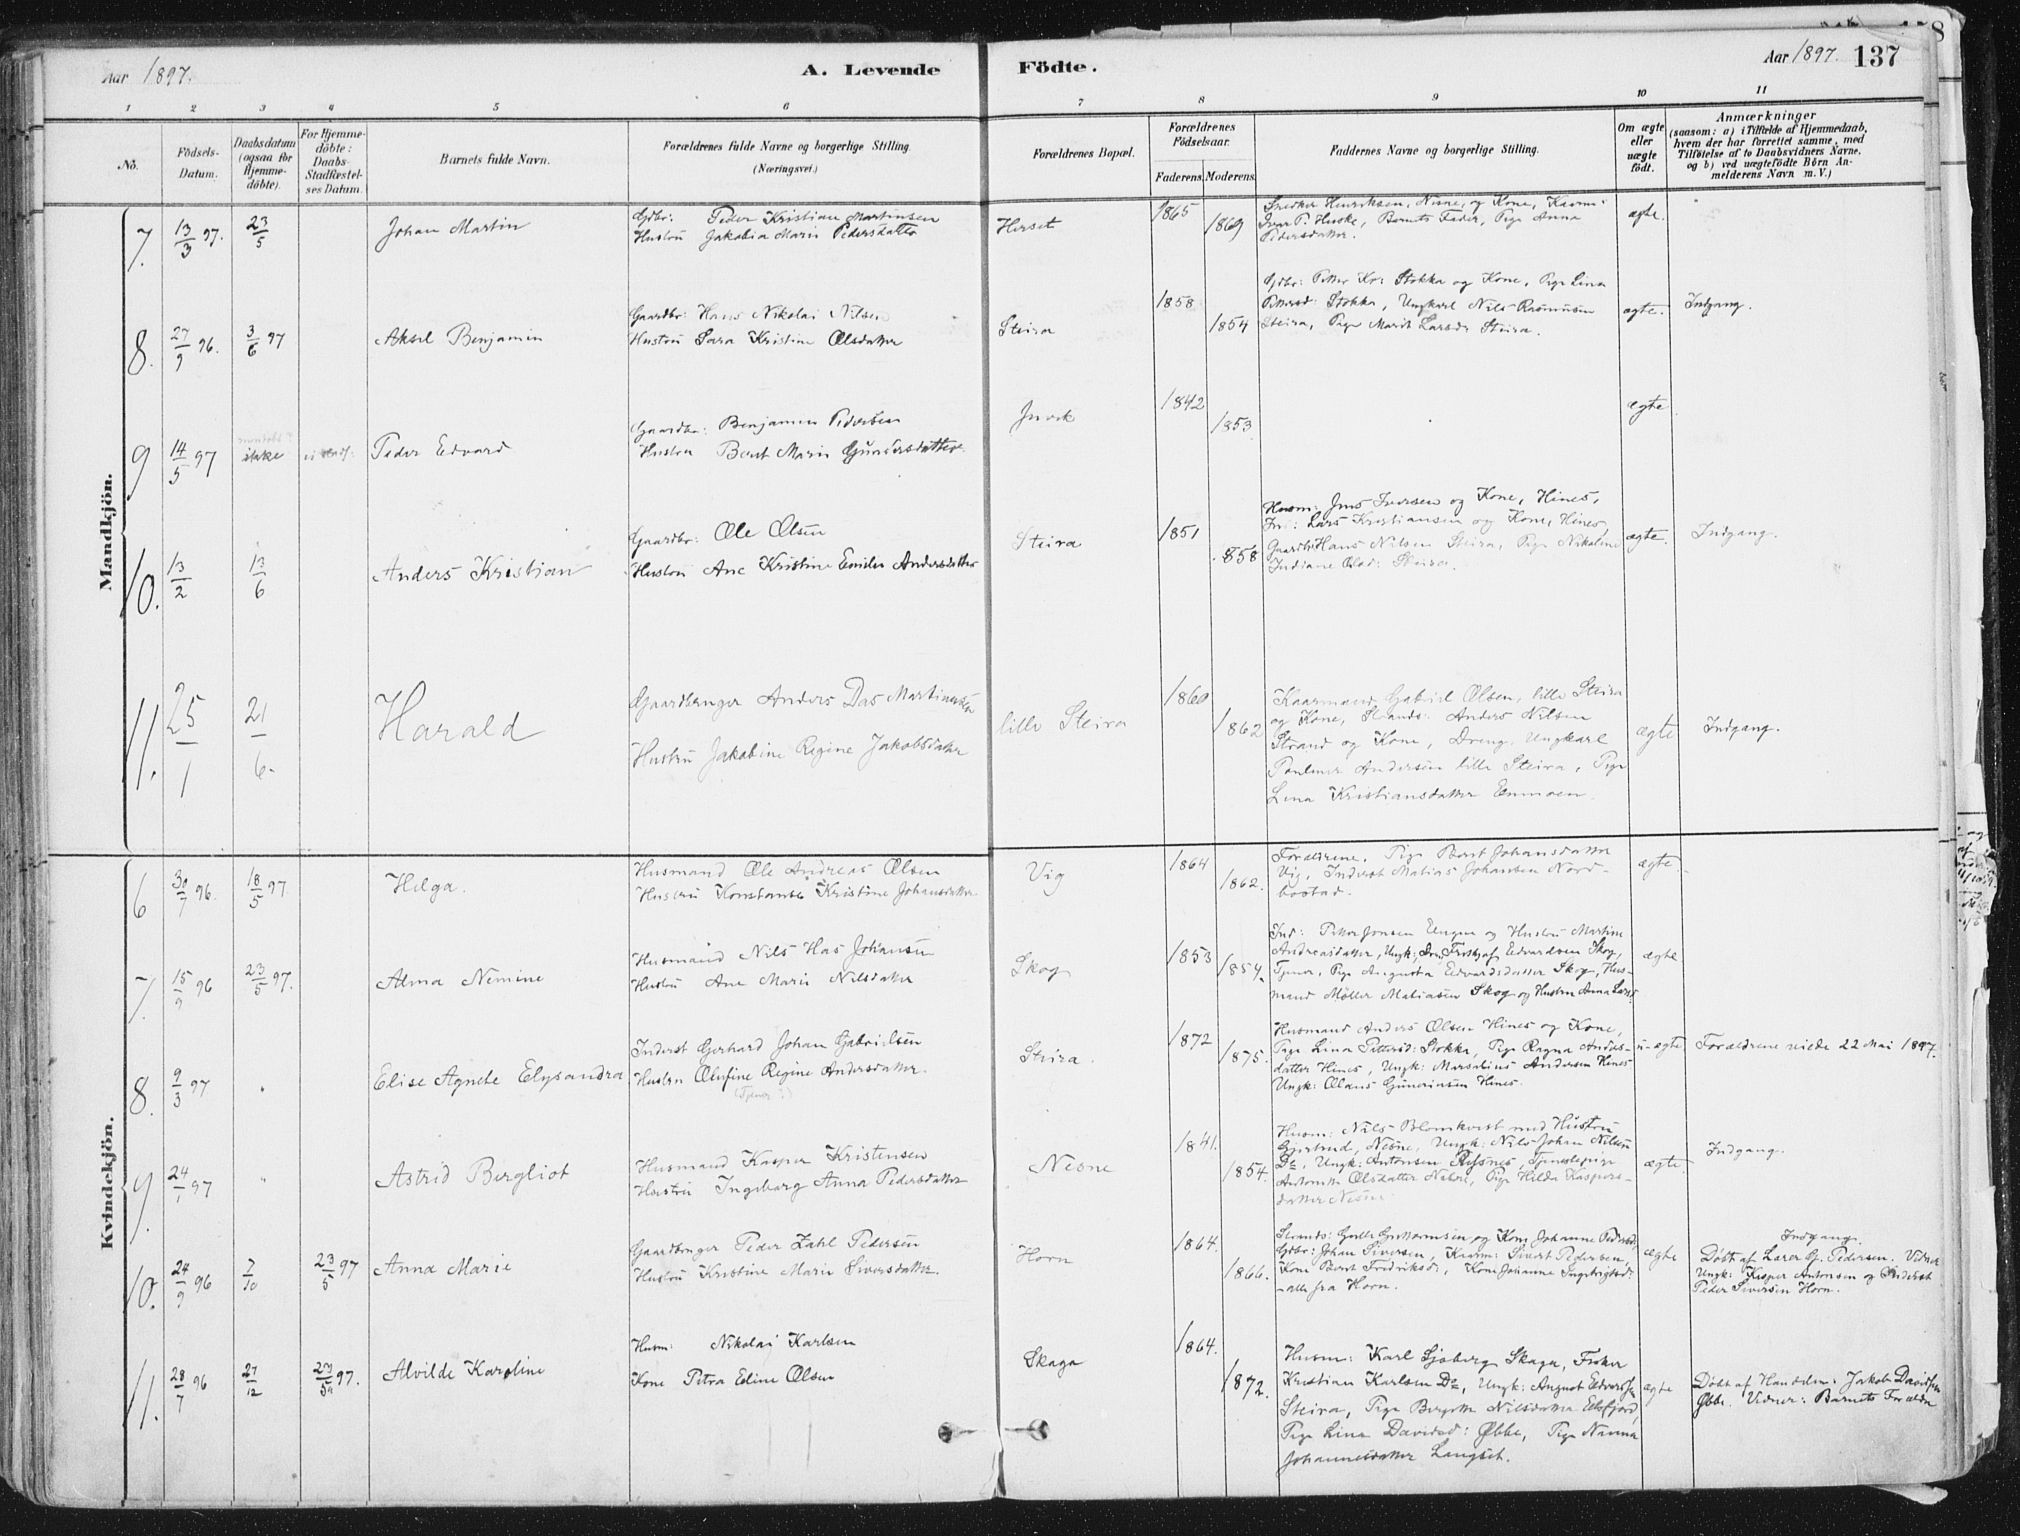 Aar 1897.
A. Levende Födte.
Aar 1897. 137
1 2 3 4 5 6 7 8 9 10 11
No.
Födsels-Datum.
Daabsdatum (ogsaa for Hjemme-döbte).
For Hjemme-döbte: Daabs-Stadfæstel-ses Datum.
Barnets fulde Navn.
Forældrenes fulde Navne og borgerlige Stilling. (Næringsvei.)
Forældrenes Bopæl.
Forældrenes Födselsaar.
Faderens. Moderens.
Faddernes Navne og borgerlige Stilling.
Om ægte eller uægte födt.
Anmærkninger
(saasom: a) i Tilfælde af Hjemmedaab,
hvem der har forrettet samme, med
Tilföielse af to Daabsvidners Navne,
og b) ved uægtefödte Börn An-
melderens Navn m. V.)
Mandkjön.
7. 13/3 97. 23/5 Johan Martin
Gdbr: Peder Kristian Martinsen
Hustru Jakobia Marie Pedersdatter
Herset 1865 1869
Henriksen, Nesne, og Kone,
Iver P. Huske, Barnets Fader, Pige Anna
Pedersdatter.
ægte.
8. 27/9 96. 3/6 97 Aksel Benjamin
Gaardbr: Hans Nikolai Nilsen
Hustru Sara Kristine Olsdatter
Steira 1858 1854
Gdbr: Petter Kr: Stokka og Kone, Pige Lina
Pettersd: Stokka, Ungkarl Nils Rasmussen
Steira, Pige Marit Larsdr Steira.
ægte. Indgang.
9 14/5 97 ikke Peder Edvard
Gaardbr: Benjamin Pedersen
Hustru Berit Marie Gunersdatter
1842 1853
ægte
10. 13/2 13/6 Anders Kristian
Gaardbr: Ole Olsen
Hustru Ane Kristine Emilie Andersdatter
Steira 1851 1858
Husm: Jens Iversen og Kone, Hines,
Lars Kristiansen og Kone, Hines,
Gaardbr: Hans Nilsen Steira, Pige Nikoline
Indiane Olsd: Steira.
ægte. Indgang.
11. 25/1 21/6 Harald
Gaardbruger Anders Das Martinussen
Hustru Jakobine Regine Jakobsdatter
lille Steira 1860 1862
Kaarmand Gabriel Olsen, lille Steira
og Kone, Strands: Anders Nilsen
Strand og Kone, Dreng Ungkarl
Andersen lille Steira, Pige
Lina Kristiansdatter Enmoen.
ægte Indgang.
Kvindekjön.
6 30/7 96. 18/5 97. Helga.
Husmand Ole Andreas Olsen
Hustru Konstanse Kristine Johansdatter
Vig 1864 1862.
Forældrene. Pige Berit Johansdatter
Vig, Inderst Matias Johansen Nord-
bostad.
ægte.
7. 15/9 96 23/5 97. Alma Nemine
Husmand Nils Has Johansen
Hustru Ane Marie Nilsdatter
Skog 1853 1854.
Ind: Petter Jonsen og Hustru Martine
Andreasdatter, Ungk: Fritjof Edvardsen Skog,
Pige Augusta Edvardsdatter Skog, Hus-
mand Møller Matiasen Skog og Hustru Anna Larsd:
ægte
8. 9/3 97 " Elise Agnete Elysandra
Inderst Gerhard Johan Gabrielsen
Hustru Olufine Regine Andersdatter.
Steira. 1872 1875.
Husmand Anders Olsen Hines og Kone,
Pige Lina Pettersd: Stokka, Pige Ragna Anders-
datter Hines, Ungk: Marselius Andersen Hines
Ungk: Olaus Gunerinsen Hines.
u-ægte Forældrene viede 22 Mai 1897.
9. 24/1 97 " Astrid Bergliot
Husmand Kasper Kristensen
Hustru Ingeborg Anna Pedersdatter
Nesne 1841. 1854.
Husm: Nils Blomkvist med Hustru
Gjertrud, Nesne, Ungk: Nils Johan Nilsen
Do, Ungk: Antonsen Tjenestepige
Antonette Olsdatter Pige Hilda Kaspers-
datter Nesne
ægte. Indgang.
10. 24/9 96 7/10 23/5 97 Anna Marie
Gaardbruger Peder Zahl Pedersen
Hustru Kristine Marie Siversdatter.
Horn 1864. 1866.
Strands: og Kone Johanne Pedersd:
Gdbr: Johan Siversen, Kaarm: Sivert Pedersen,
Kone Berit Fredriksd:, Kone Johanne Ingebrigtsd:
- alle fra Horn.
ægte Indgang.
Døbt af Lærer G. Pedersen. Vidner
Ungk: Kasper Antonsen og Inderst
Peder Siversen Horn.
11. 28/7 96 27/12 23/5 97. Alvilde Karoline
Husm: Nikolai Karlsen
Kone Petra Edine Olsen
Skaga 1864. 1872.
Husm: Karl Sjøberg Skaga, Fisker
Kristian Karlsen Do, Ungk: August
Steira, Pige Bergitte Nilsdatter
Pige Lina Davidsd: Øbbe, Pige Nanna
Johannesdatter Langset.
ægte Døbt af Handelsm: Jakob Davidsen
Øbbe. Vidner: Barnets Forældre